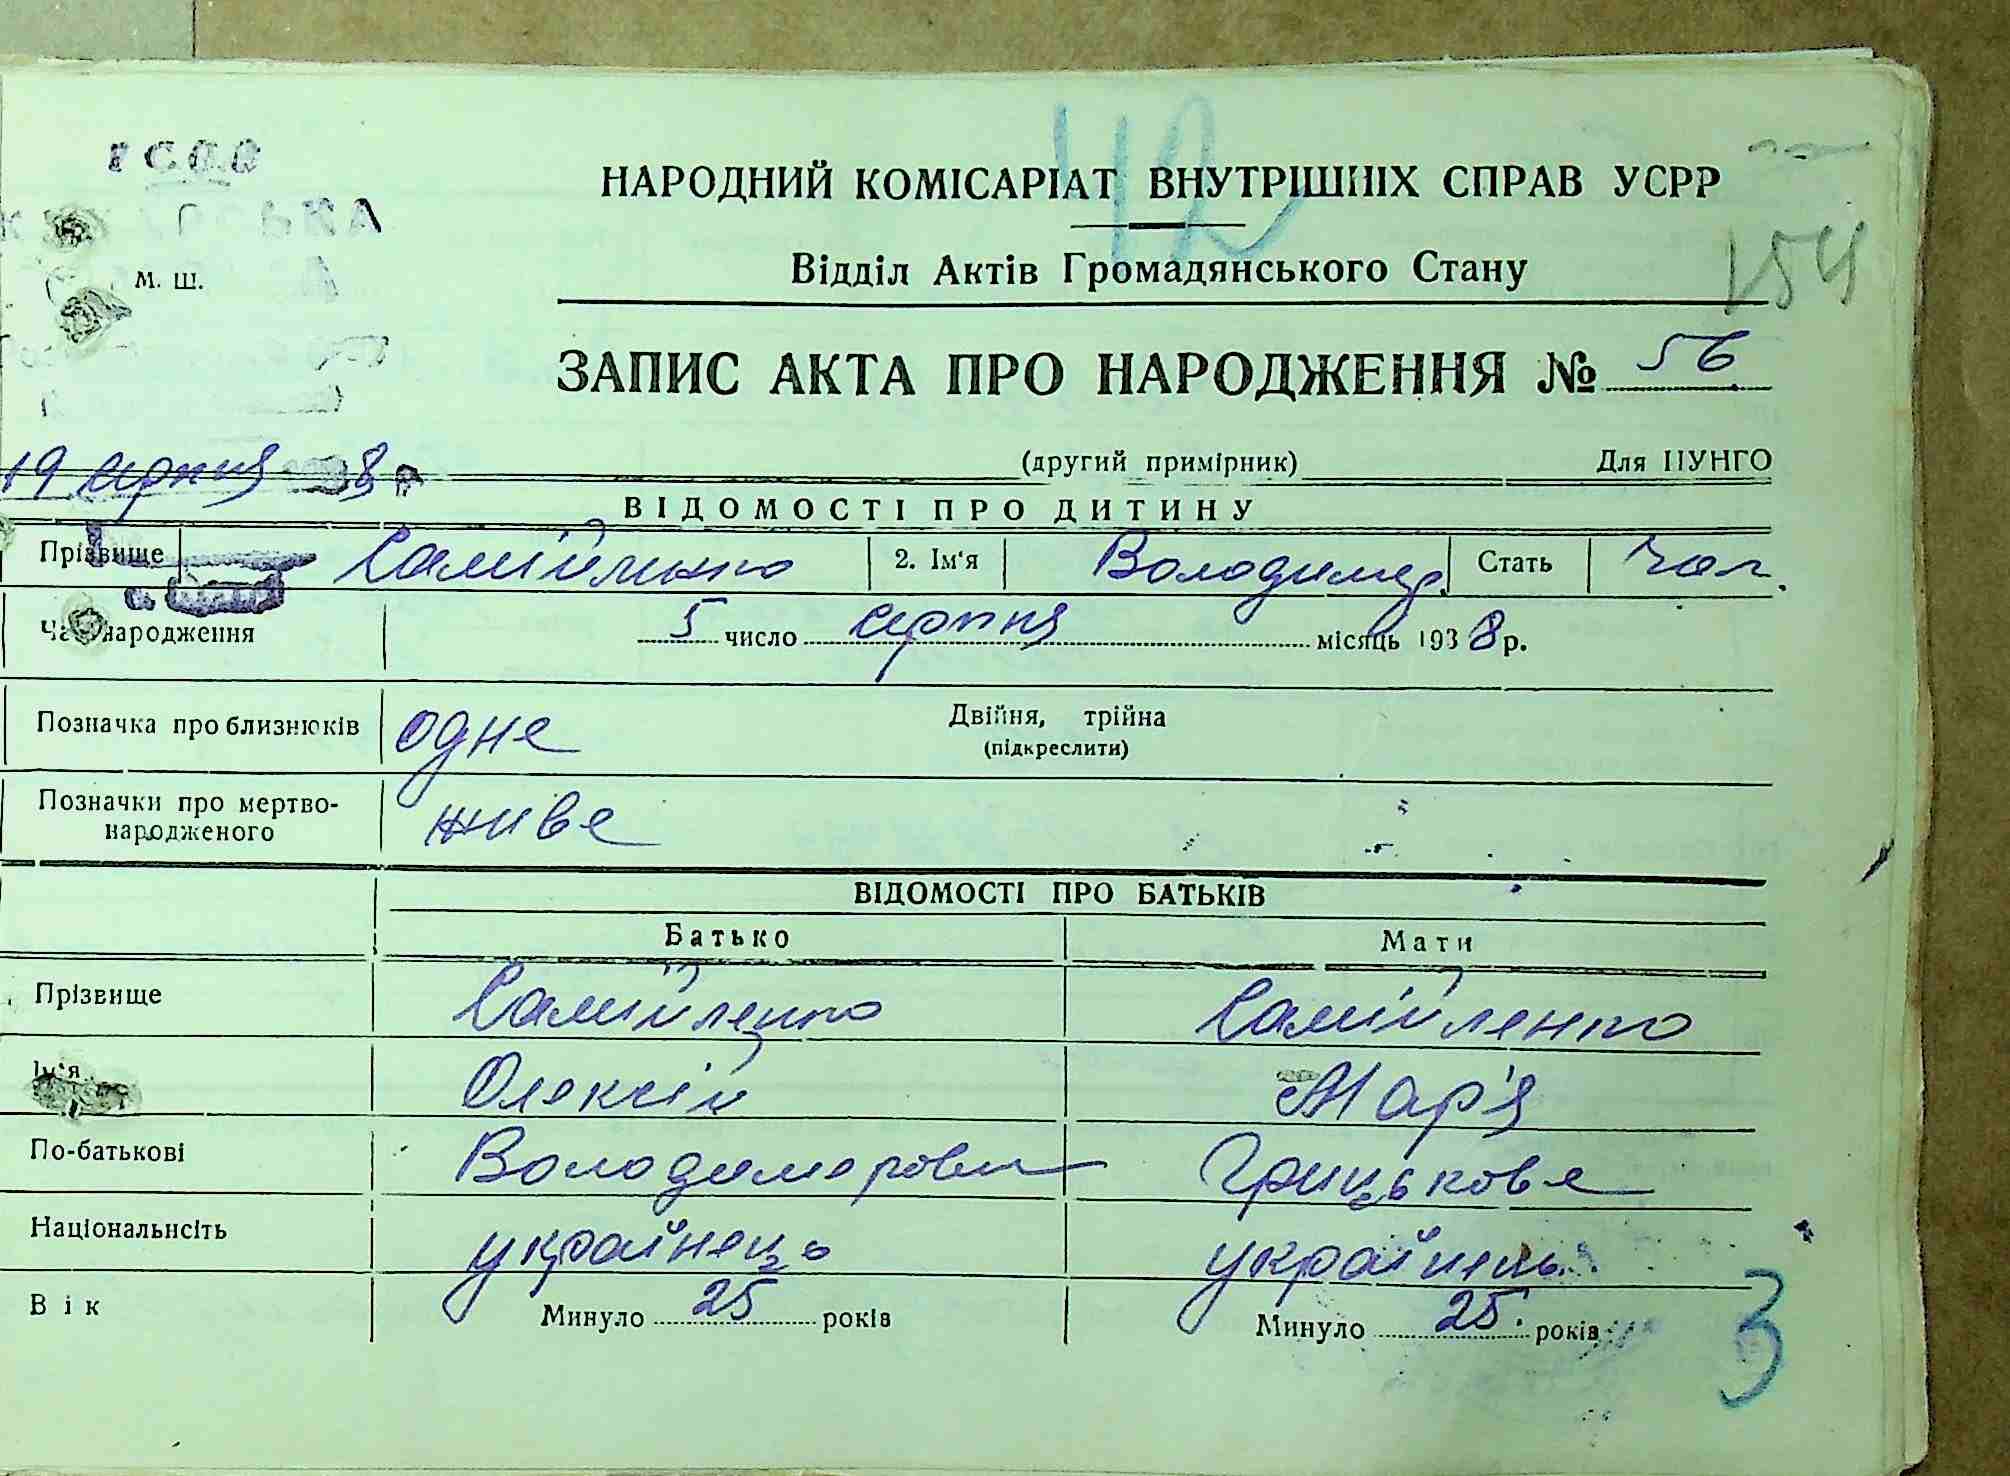 42
НАРОДНИЙ КОМІСАРІАТ ВНУТРІШНІХ СПРАВ УСРР
М. Ш.
Відділ Актів Громадянського Стану
154
ЗАПИС АКТА ПРО НАРОДЖЕННЯ № 56
19 серпня 8 р
(другий примірник) Для ЦУНГО
ВІДОМОСТІ ПРО ДИТИНУ
Прізвище Самійленко 2. Ім‘я Володимир Стать Чол.
Час народження 5 число серпня місяць 1938 р.
Позначка про близнюків одне Двійня, трійня
(підкреслити)
Позначки про мертво-
народженого живе
ВІДОМОСТІ ПРО БАТЬКІВ
Батько Мати
Прізвище Самійленко Самійленко
Ім‘я Олексій Мар'я
По-батькові Володимирович Грицькове
Національнсіть українець українець
Вік Минуло 25 років Минуло 25. років
3